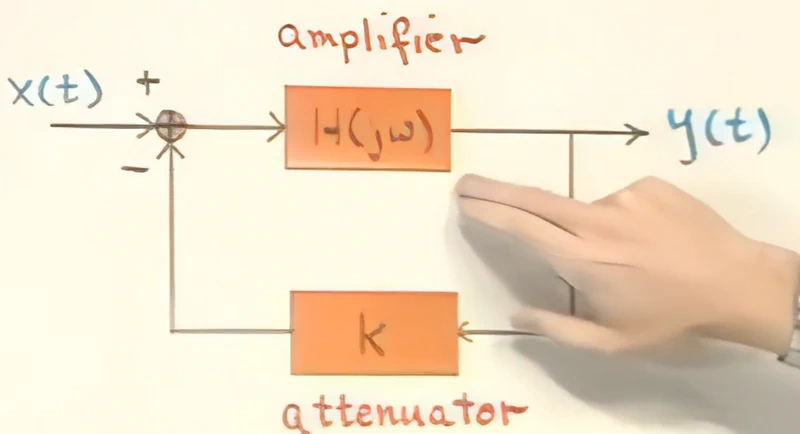 amplifier
x(t) + H(jω) y(t)
−
k
attenuator